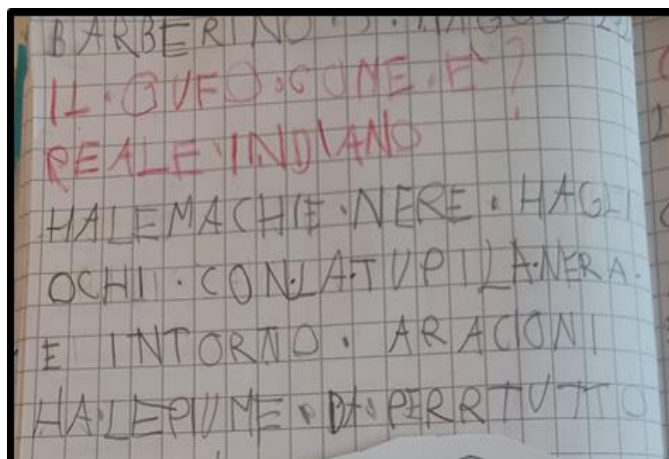 BARBERINO
IL·GUFO·COME·E'?
REALE·INDIANO
HALEMACHIE·NERE·HAGLI
OCHI·CON·LA·TUPILA·NERA·
E INTORNO·ARACIONI
HA·LEPIUME·DA·PERRTUTTO